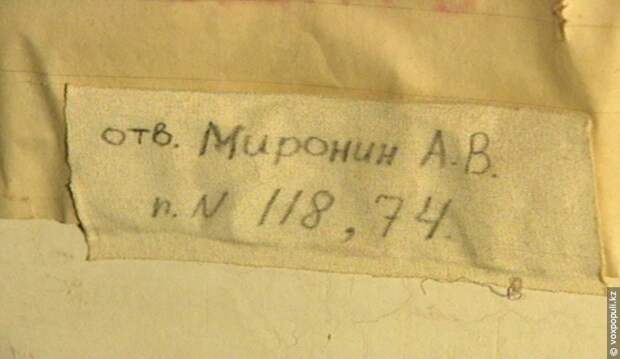 отв. Миронин А.В.
п. N 118, 74.
в
© voxpopuli.kz